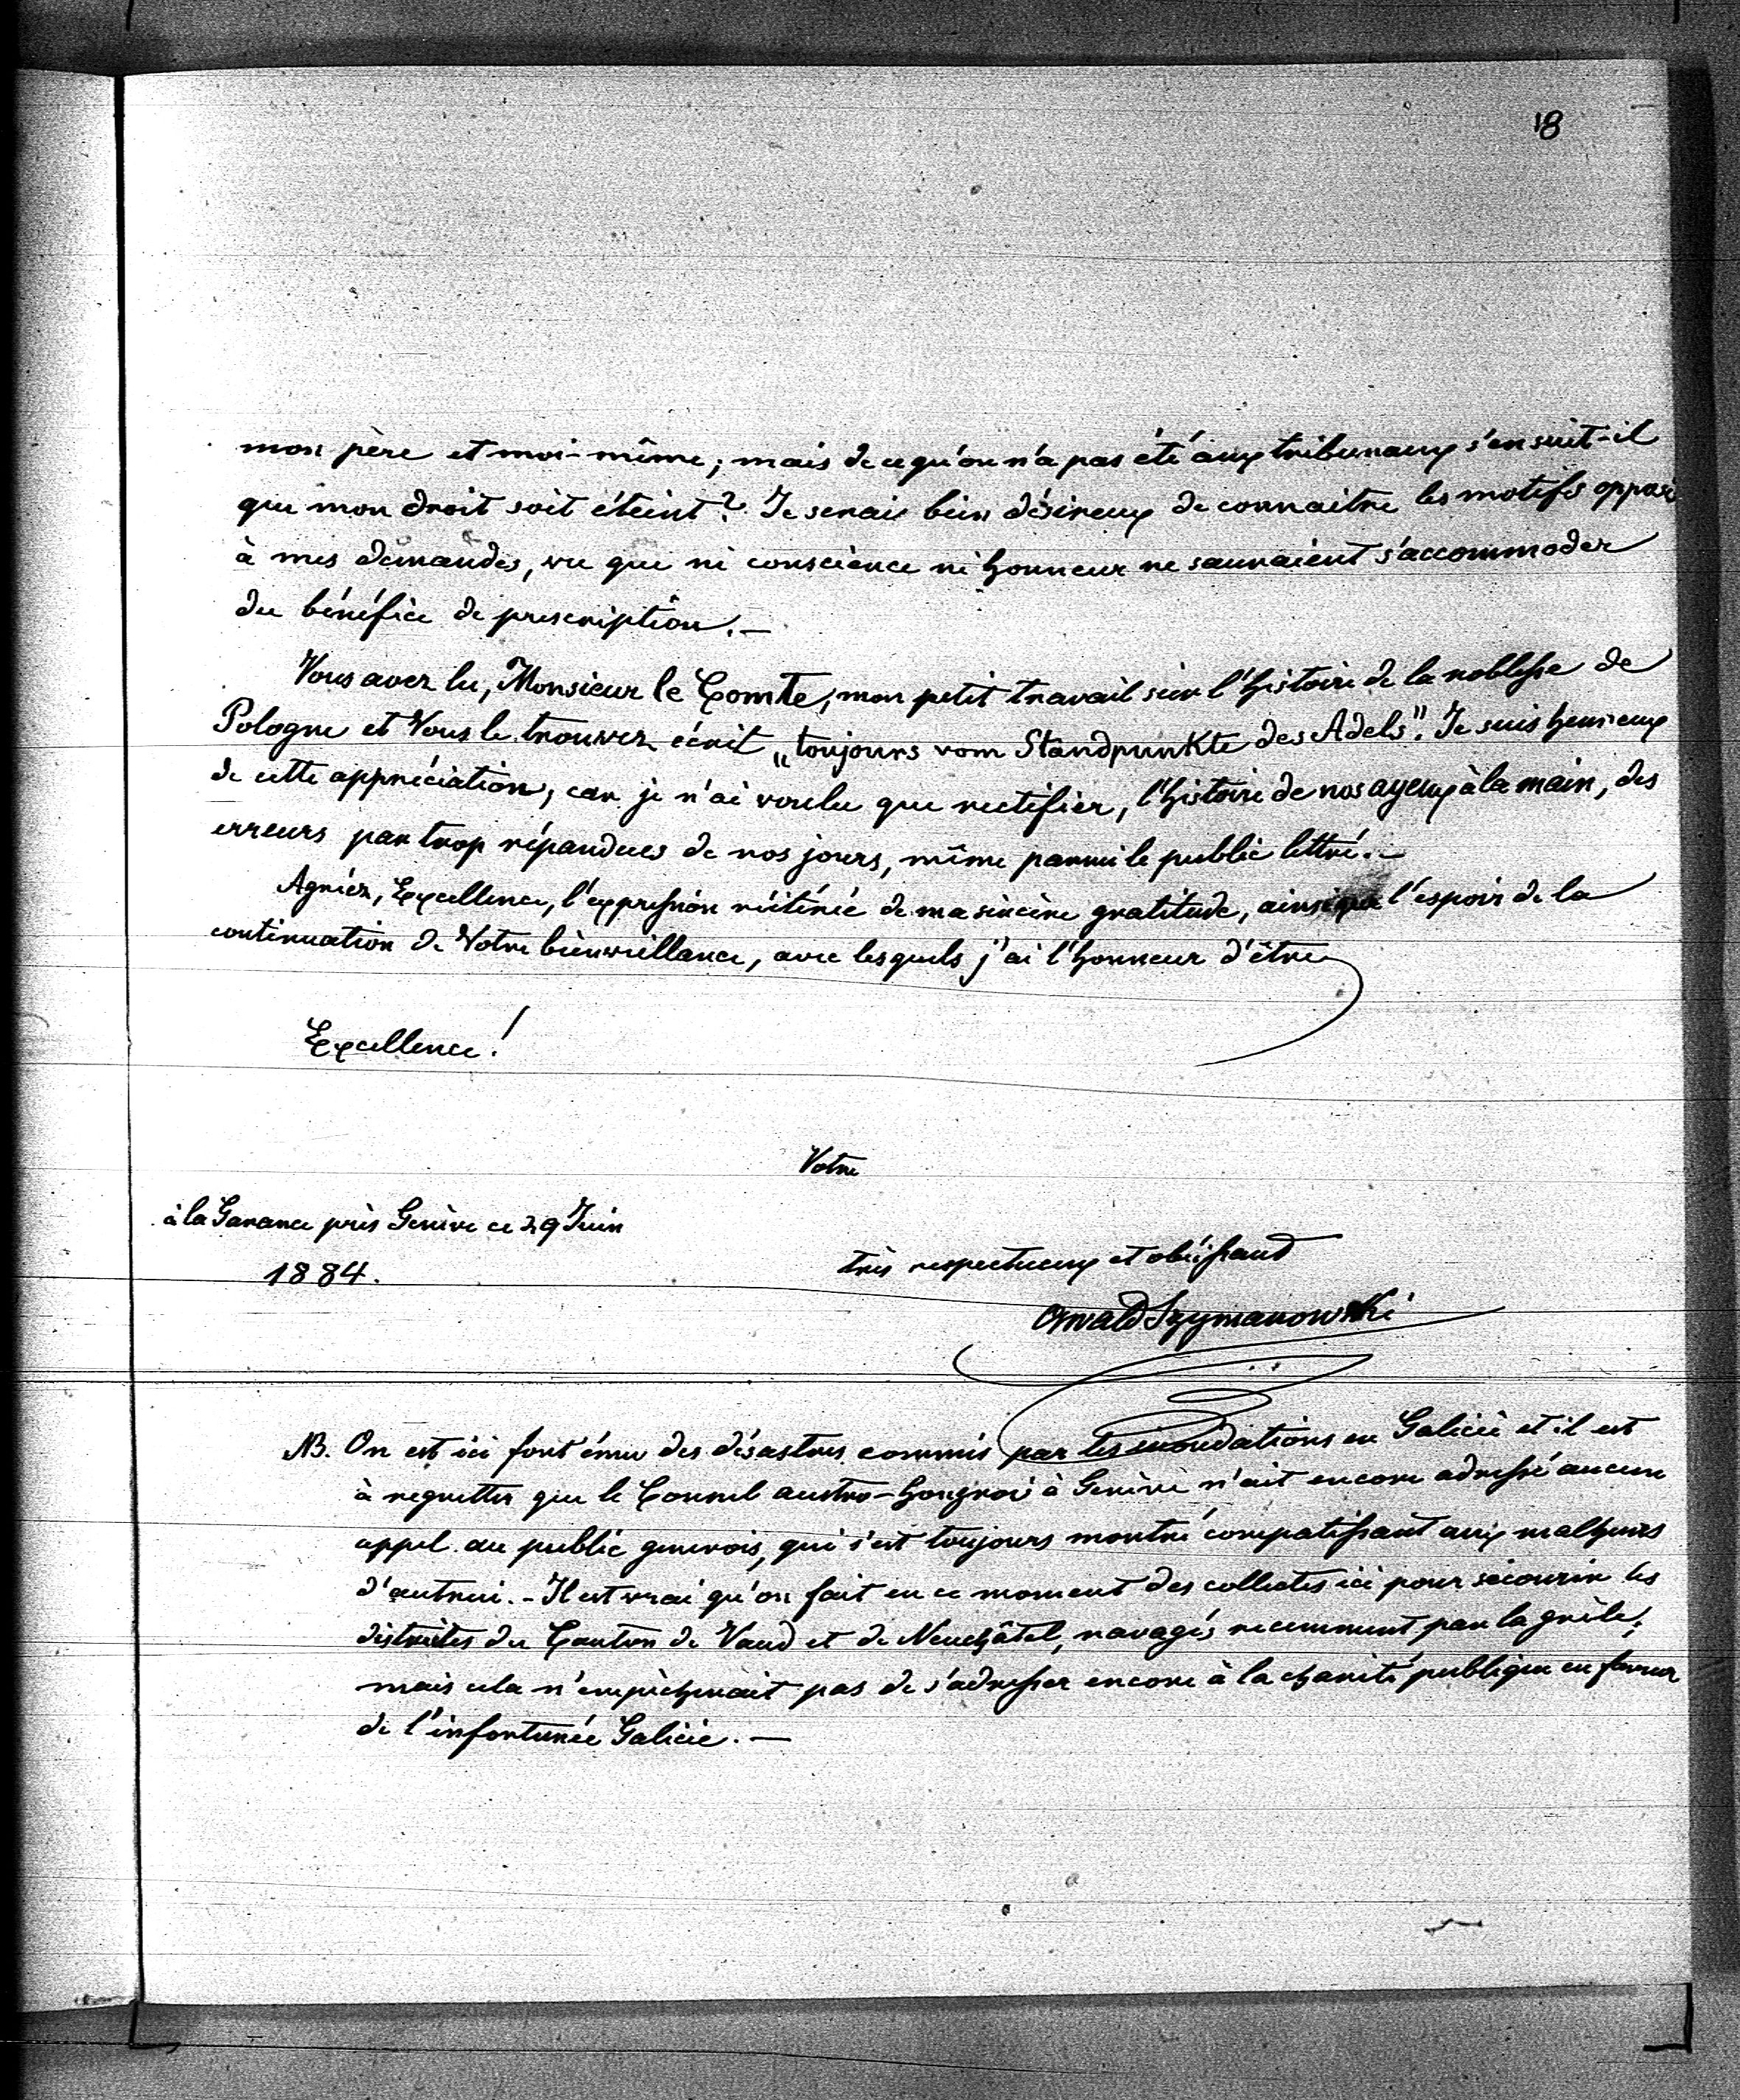 18
mon père et moi-même; mais de ce qu'on n'a pas été aux tribunaux s'en suit-il
que mon droit soit éteint? Je serais bien désireux de connaitre les motifs opposés
à mes demandes, vu que ni conscience ni honneur ne sauraient s'accommoder
du bénéfice de prescription.—
Vous avez lu, Monsieur le Comte, mon petit travail sur l'histoire de la noblesse de
Pologne et Vous le trouvez écrit „toujours vom Standpunkte des Adels". Je suis heureux
de cette appréciation, car je n'ai voulu que rectifier, l'histoire de nos ayeux à la main, des
erreurs par trop répandues de nos jours, même parmi le public lettré.—
Agréez, Excellence, l'expression réitérée de ma sincère gratitude, ainsi que l'espoir de la
continuation de Votre bienveillance, avec lesquels j'ai l'honneur d'être
Excellence!
Votre
à la Garance près Genève ce 29 Juin
1884.
très respectueux et obéissant
Oswald Szymanowski
NB. On est ici fort ému des désastres commis par les inondations en Galicie et il est
à regretter que le Consul austro-hongrois à Genève n'ait encore adressé aucun
appel au public genevois, qui s'est toujours montré compatissant aux malheurs
d'autrui.- Il est vrai qu'on fait en ce moment des collectes ici pour sécourir les
districtes du Canton de Vaud et de Neuchâtel, ravagés recemment par la grêle;
mais cela n'empêcherait pas de s'adresser encore à la charité publique en faveur
de l'infortunée Galicie.—